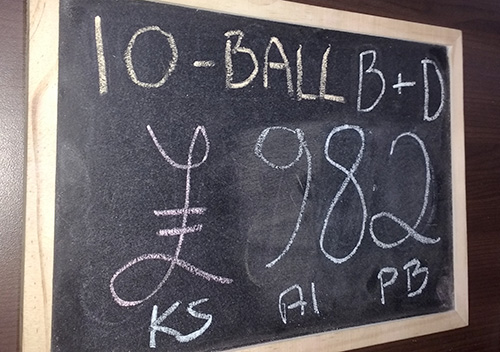 10-BALL B+D
£982
KS A1 PB